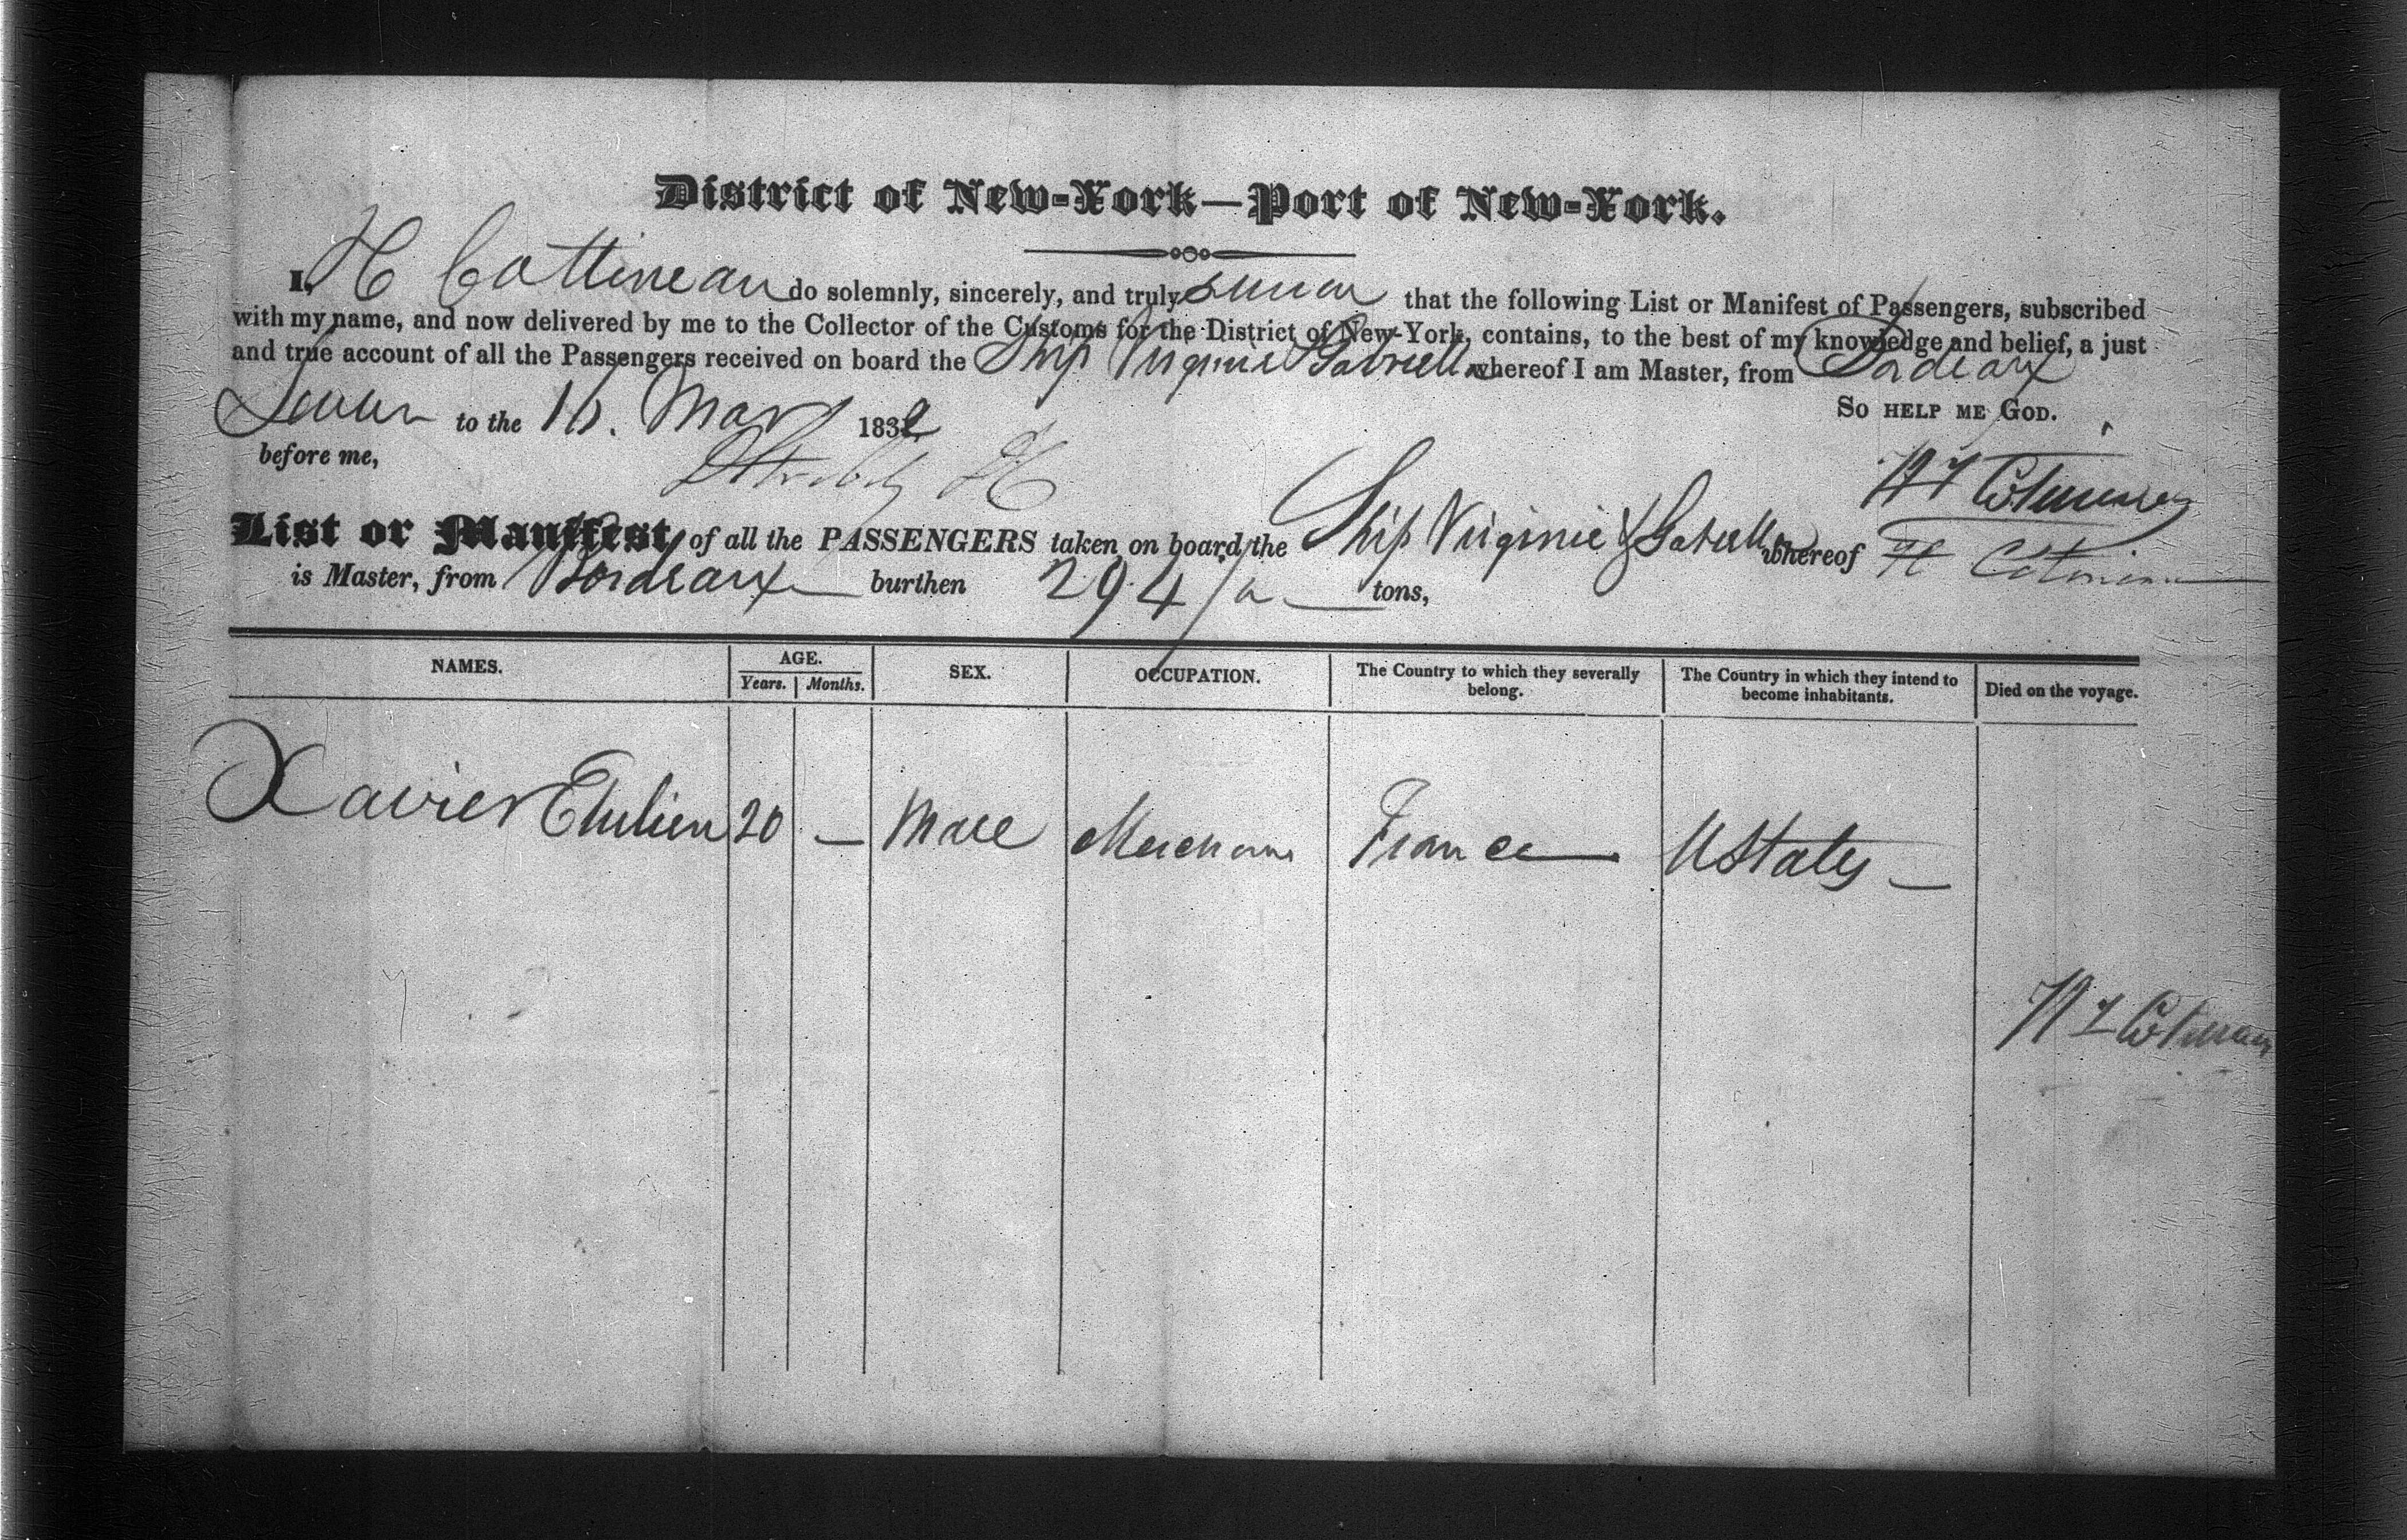 District of New-York—Port of New-York.
I, H Cottineau do solemnly, sincerely, and truly swear that the following List or Manifest of Passengers, subscribed
with my name, and now delivered by me to the Collector of the Customs for the District of New-York, contains, to the best of my knowledge and belief, a just
and true account of all the Passengers received on board the Ship Virginie & Gabriella whereof I am Master, from Bordeaux
Sworn to the 16. May 1832 So HELP ME GOD.
before me,
List or Manifest of all the PASSENGERS taken on board the Ship Virginie & Gabriella whereof
is Master, from Bordeaux burthen 294 tons,
NAMES. AGE. SEX. OCCUPATION. The Country to which they severally belong. The Country in which they intend to become inhabitants. Died on the voyage.
Years. Months.
Xavier 20 — Male Merchant France UStates —